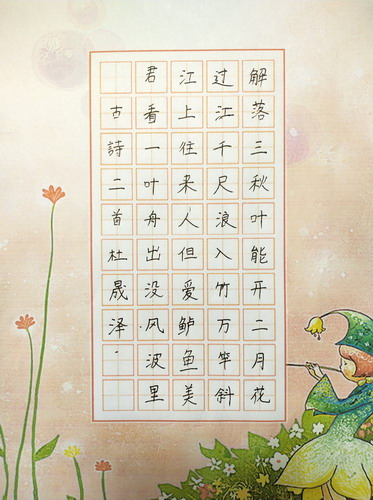 解落三秋叶能开二月花
过江千尺浪入竹万竿斜
江上往来人但爱鲈鱼美
君看一叶舟出没风波里
古詩二首杜晟泽